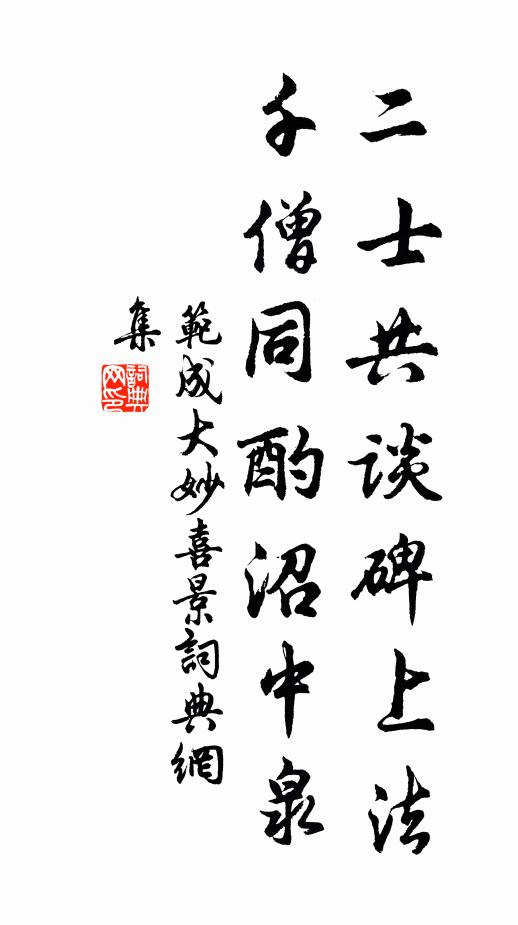 二士共谈碑上法
千僧同酌沼中泉
範成大妙喜景詞典網
集
詞典網印